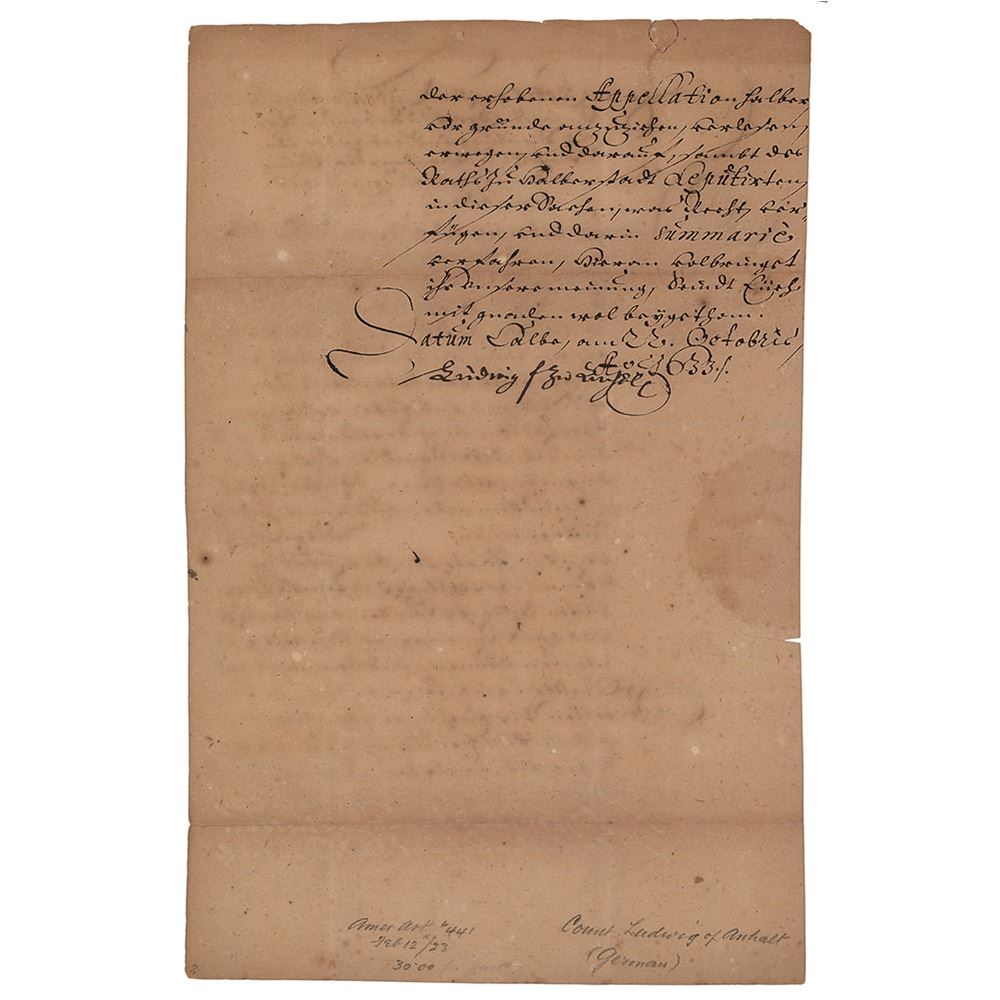 der erhobenen Appellation halber
vor gründe anzuziehen, verlesen,
erwegen, und darauf, sambt des
Raths zu Halberstadt Deputirten,
in dieser Sachen, was Recht, ver-
fügen, und darin summariè
verfahren, Hieran volbringet
ihr unsere meinung, Seindt Euch
mit gnaden wol beygethan.
Datum Calbe, am 22. Octobris,
Ao 1633.
Ludwig f zu Anhalt
Amer Art #441
Feb 12/23
30.00
Count Ludwig of Anhalt
(German)